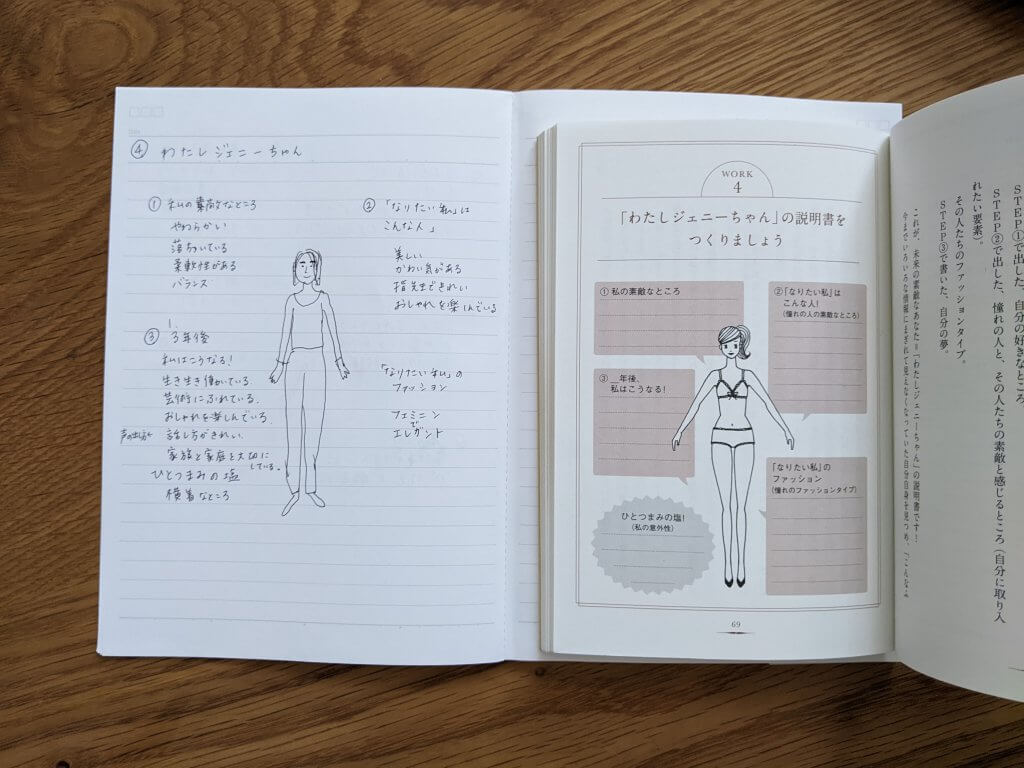 ④ わたしジェニーちゃん
① 私の素敵なところ
やわらかい
落ちついている
柔軟性がある
バランス
② 「なりたい私」は
こんな人」
美しい
かわい気がある
指先まできれい
おしゃれを楽しんでいる
③ 3年後
私はこうなる!
生き生き働いている
芸術にふれている.
おしゃれを楽しんでいる
話し方がきれい
家族と家庭を大切に
している。
ひとつまみの塩
横着なところ
「なりたい私」の
ファッション
フェミニン
で
エレガント
WORK
4
「わたしジェニーちゃん」の説明書を
つくりましょう
① 私の素敵なところ
②「なりたい私」は
こんな人!
(憧れの人の素敵なところ)
③ __年後、
私はこうなる!
「なりたい私」の
ファッション
(憧れのファッションタイプ)
ひとつまみの塩!
(私の意外性)
69
STEP①で出した、自分の好きなところ
STEP②で出した、憧れの人と、その人たちの素敵と感じるところ(自分に取り入
れたい要素)。
その人たちのファッションタイプ。
STEP③で書いた、自分の夢。
これが、未来の素敵なあなた=「わたしジェニーちゃん」の説明書です!
今までいろいろな情報にまぎれて見えなくなっていた自分自身を見つめ、「こんなふ